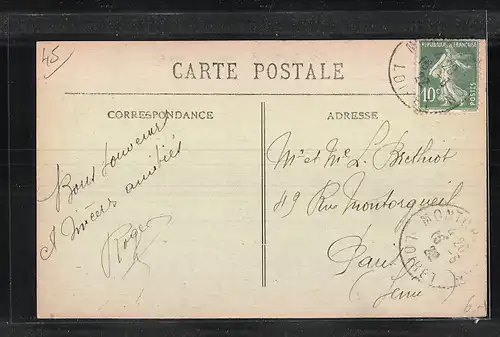 45
RÉPUBLIQUE FRANÇAISE
10c
POSTES
CARTE POSTALE
CORRESPONDANCE
ADRESSE
Bons souvenirs
& sincères amitiés
Roger
Mr et Me L. Brethiot
49 Rue Montorgueil
Paris
LOIRET